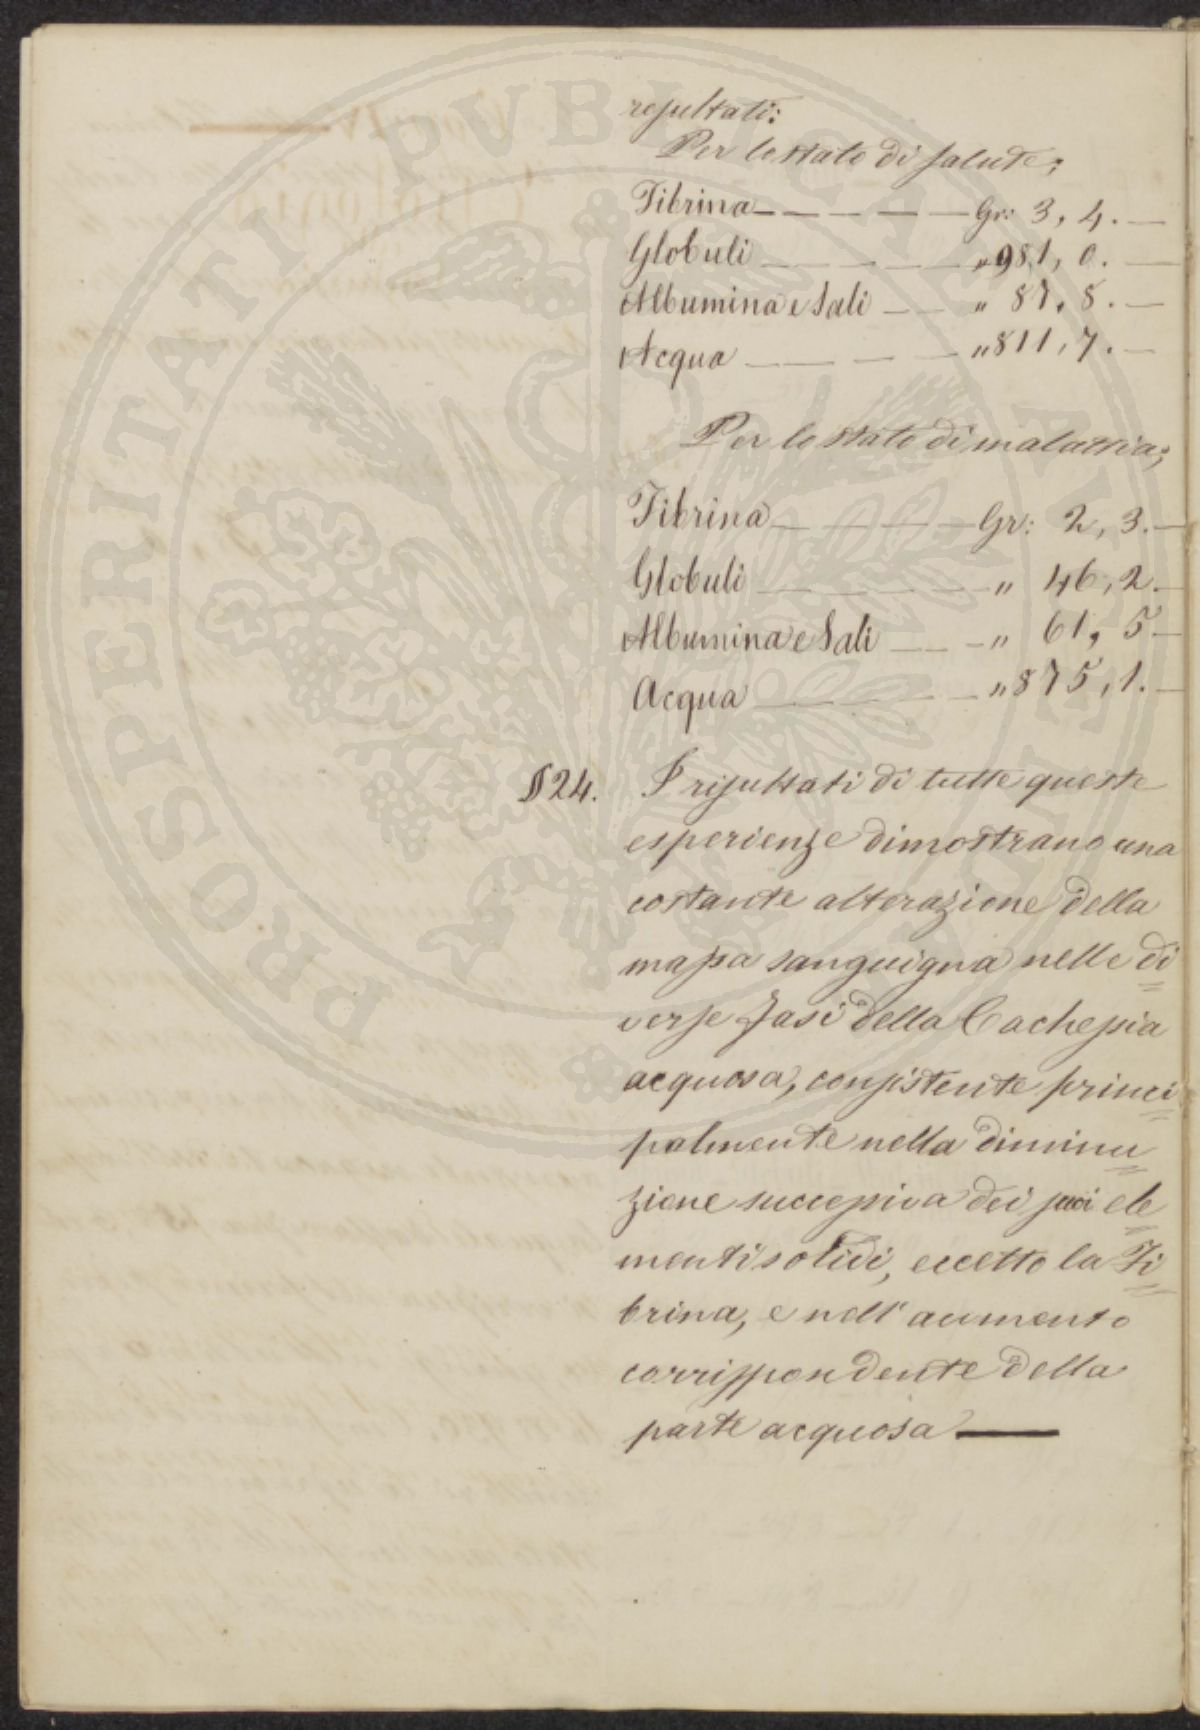 resultati:
Per lo stato di salute;
Fibrina — — — — — Gr: 3, 4. —
Globuli — — — — „ 981, 0. —
Albumina e Sali — — „ 87, 8. —
Acqua — — — „ 811, 7. —
Per lo stato di malattia;
Fibrina — — — — Gr: 2, 3. —
Globuli — — — — „ 46, 2. —
Albumina e Sali — — „ 61, 5 —
Acqua — — — — „ 875, 1. —
§ 24. I risultati di tutte queste
esperienze dimostrano una
costante alterazione della
massa sanguigna nelle di
verse fasi della Cachessia
acquosa, consistente princi
palmente nella diminu
zione successiva dei suoi ele
menti solidi, eccetto la Fi
brina, e nell' aumento
corrispondente della
parte acquosa —
PROSPERITATI PVBLICAE